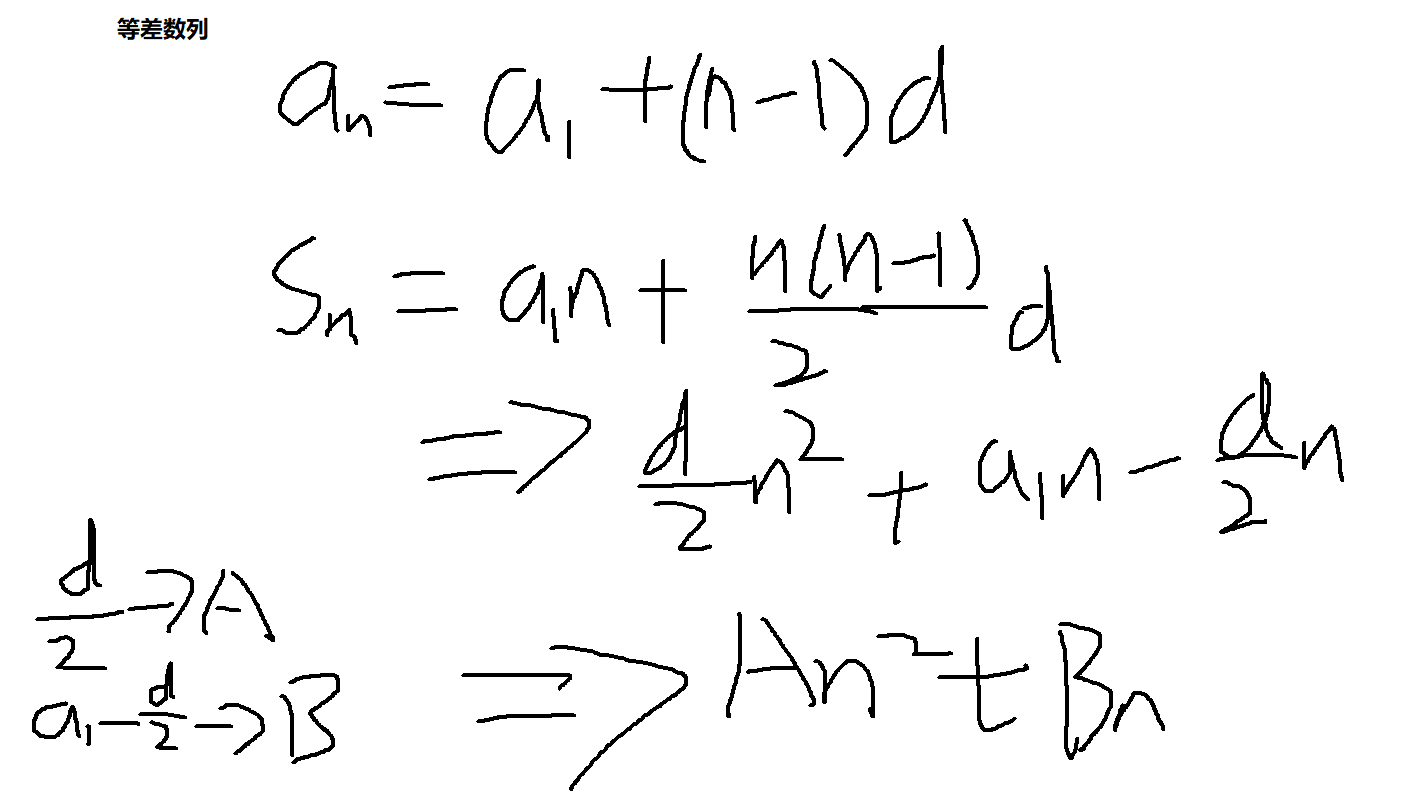 等差数列
aₙ = a₁ + (n-1)d
Sₙ = a₁n + n(n-1)/2 d
⇒ d/2 n² + a₁n - d/2 n
d/2 → A
a₁ - d/2 → B
⇒ An² + Bn